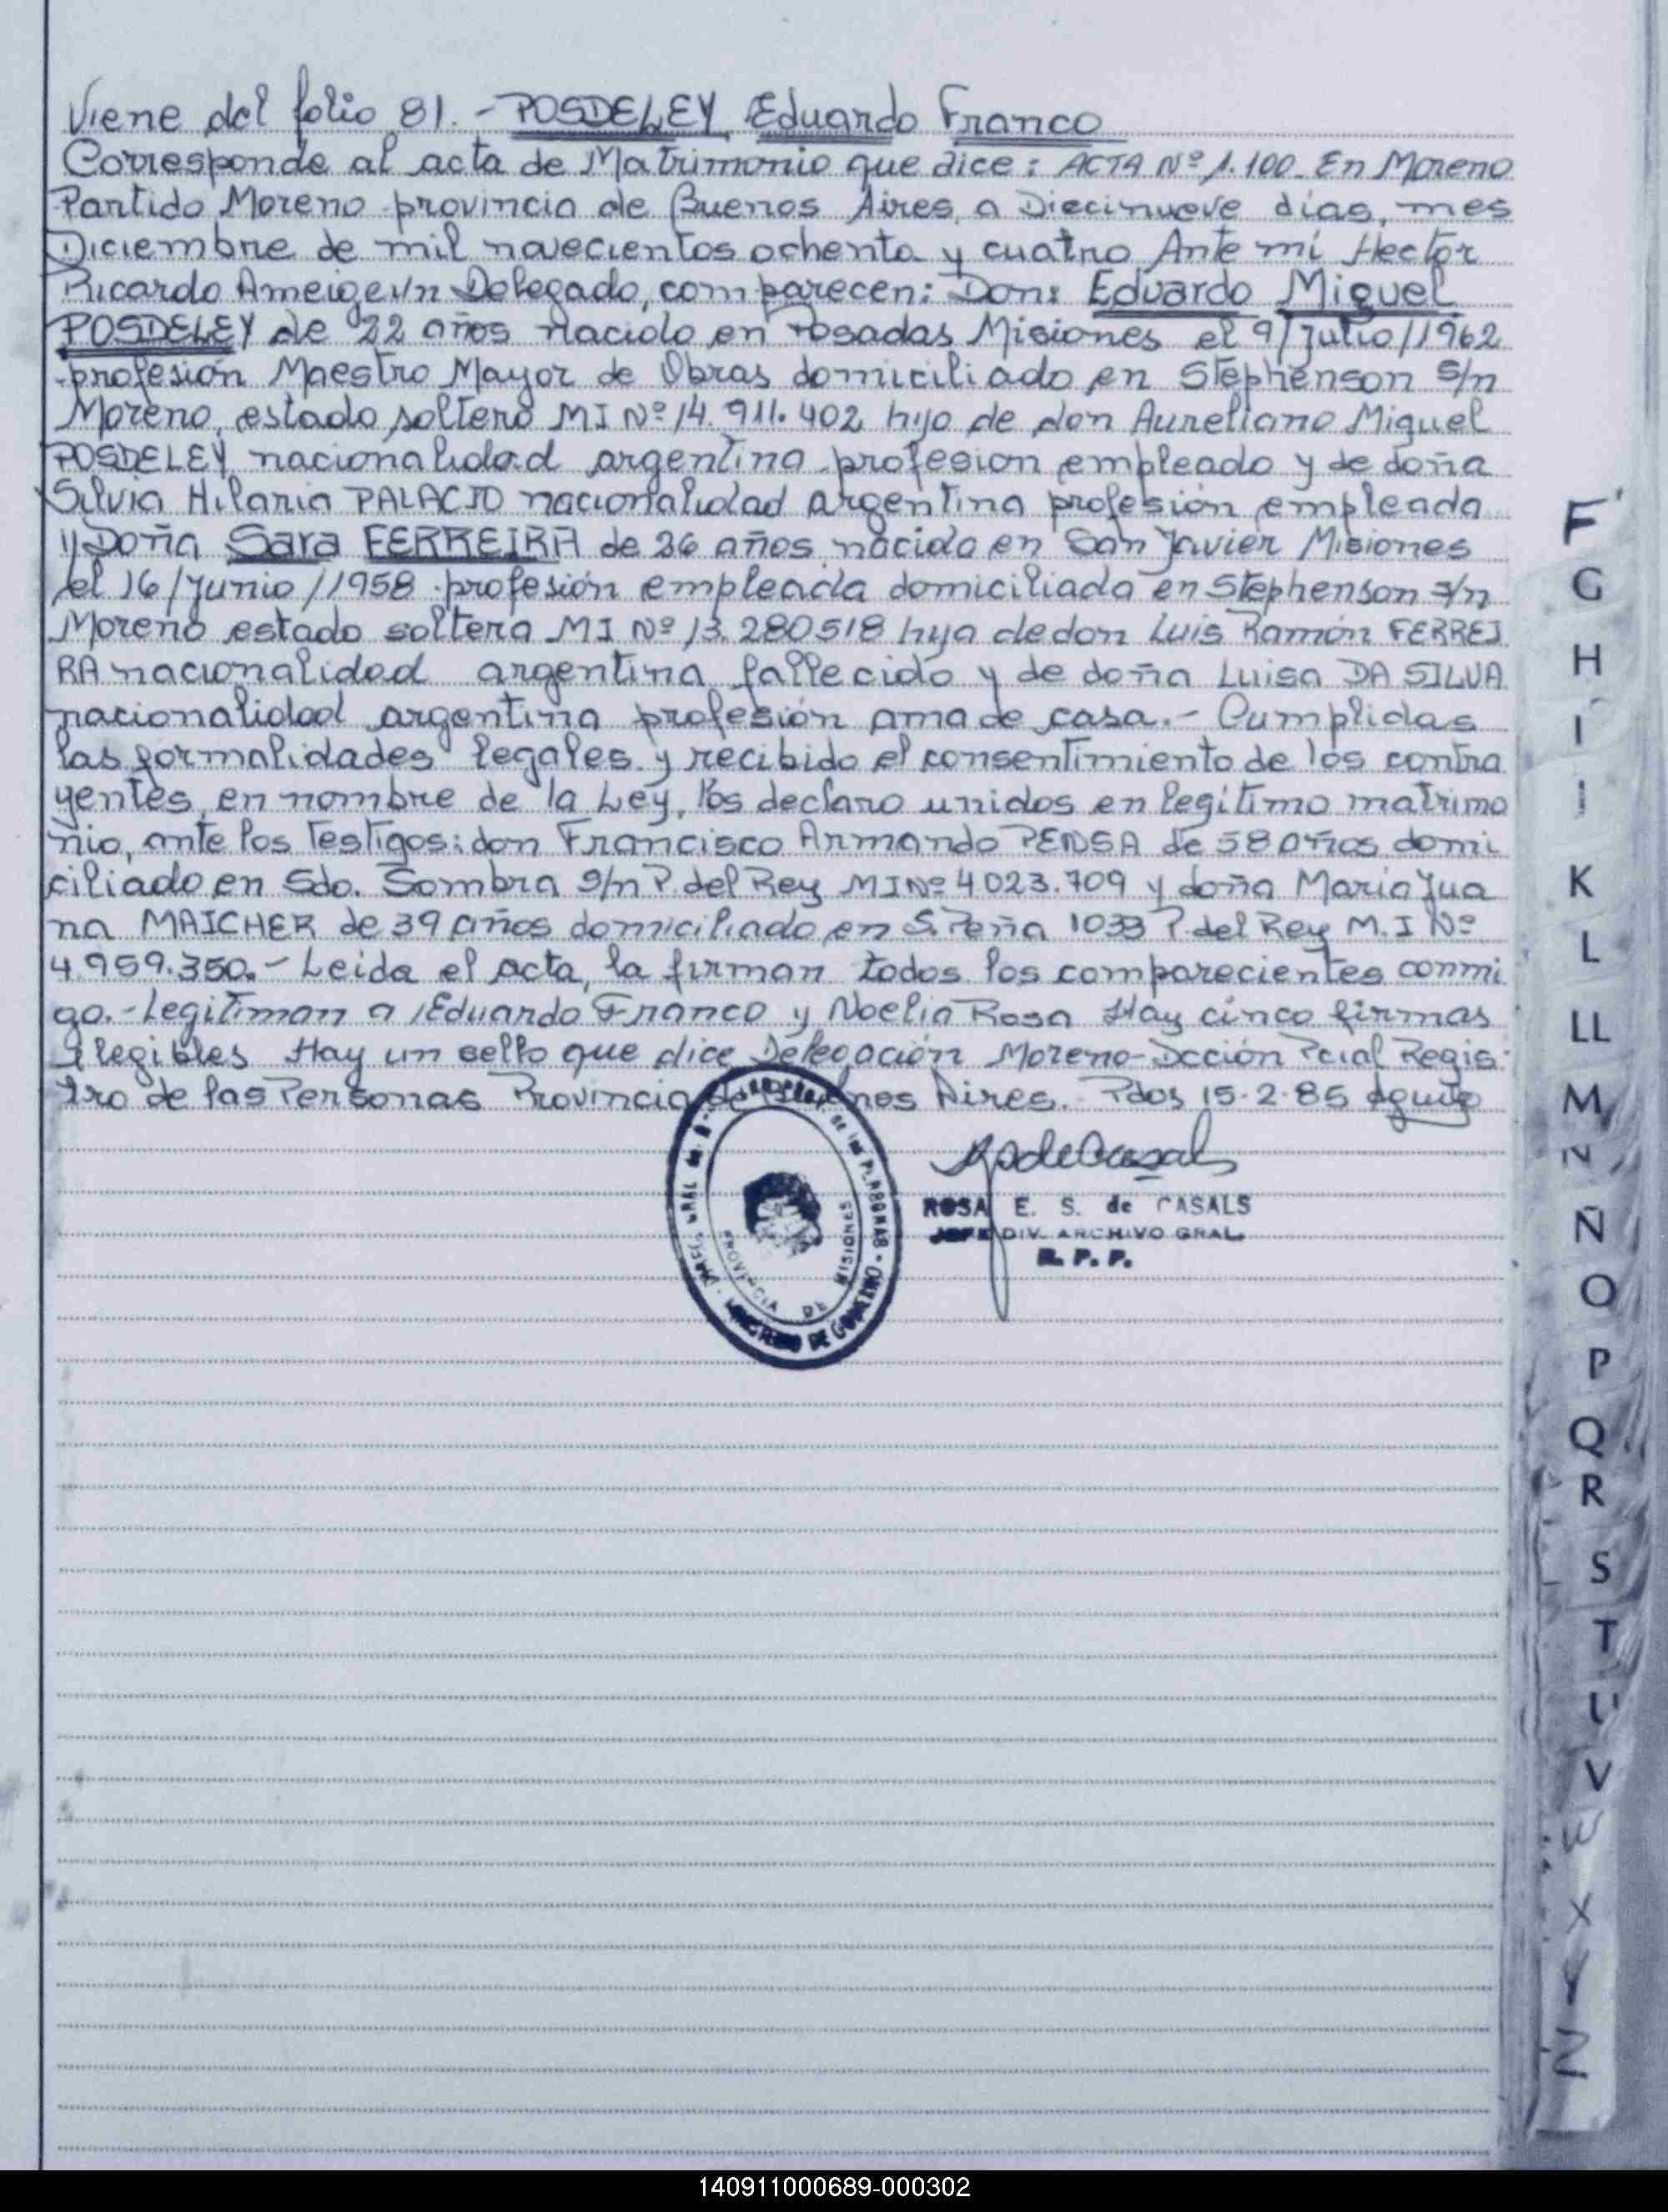 Viene del folio 81.- POSDELEY Eduardo Franco
Corresponde al acta de Matrimonio que dice: ACTA Nº 1.100. En Moreno
Partido Moreno provincia de Buenos Aires, a Diecinueve días, mes
Diciembre de mil novecientos ochenta y cuatro Ante mí Hector
Ricardo Delegado, comparecen: Don: Eduardo Miguel
POSDELEY de 22 años nacido en Posadas Misiones el 9/Julio/1962
profesión Maestro Mayor de Obras domiciliado en Stephenson s/n
Moreno, estado soltero MI Nº 14.911.402 hijo de don Aureliano Miguel
POSDELEY nacionalidad argentina profesion empleado y de doña
Silvia Hilaria PALACIO nacionalidad argentina profesión empleada
y Doña Sara FERREIRA de 26 años nacida en San Javier Misiones
el 16/Junio/1958 profesión empleada domiciliada en Stephenson s/n
Moreno estado soltera MI Nº 13.280518 hija de don Luis Ramón FERREI
RA nacionalidad argentina fallecido y de doña Luisa DA SILVA
nacionalidad argentina profesión ama de casa.- Cumplidas
las formalidades legales y recibido el consentimiento de los contra
yentes, en nombre de la Ley, los declaro unidos en legítimo matrimo
nio, ante los Testigos: don Francisco Armando PENSA de 58 años domi
ciliado en Sdo. Sombra s/n P. del Rey MI Nº 4.023.709 y doña Maria Jua
na MAICHER de 39 años domiciliado en S. Peña 1033 P. del Rey M.I Nº
4.959.350.- Leida el acta, la firman todos los comparecientes conmi
go.- Legitiman a Eduardo Franco y Noelia Rosa Hay cinco firmas
ilegibles Hay un sello que dice Delegación Moreno-Dcción Pcial Regis
tro de las Personas Provincia de Buenos Aires. Pdas 15-2-85
ROSA E. S. de CASALS
JEFE DIV. ARCHIVO GRAL.
R. P. P.
de las PERSONAS - MINISTERIO DE GOBIERNO
PROVINCIA DE MISIONES
F
G
H
I
J
K
L
LL
M
N
Ñ
O
P
Q
R
S
T
U
V
W
X
Y
Z
140911000689-000302